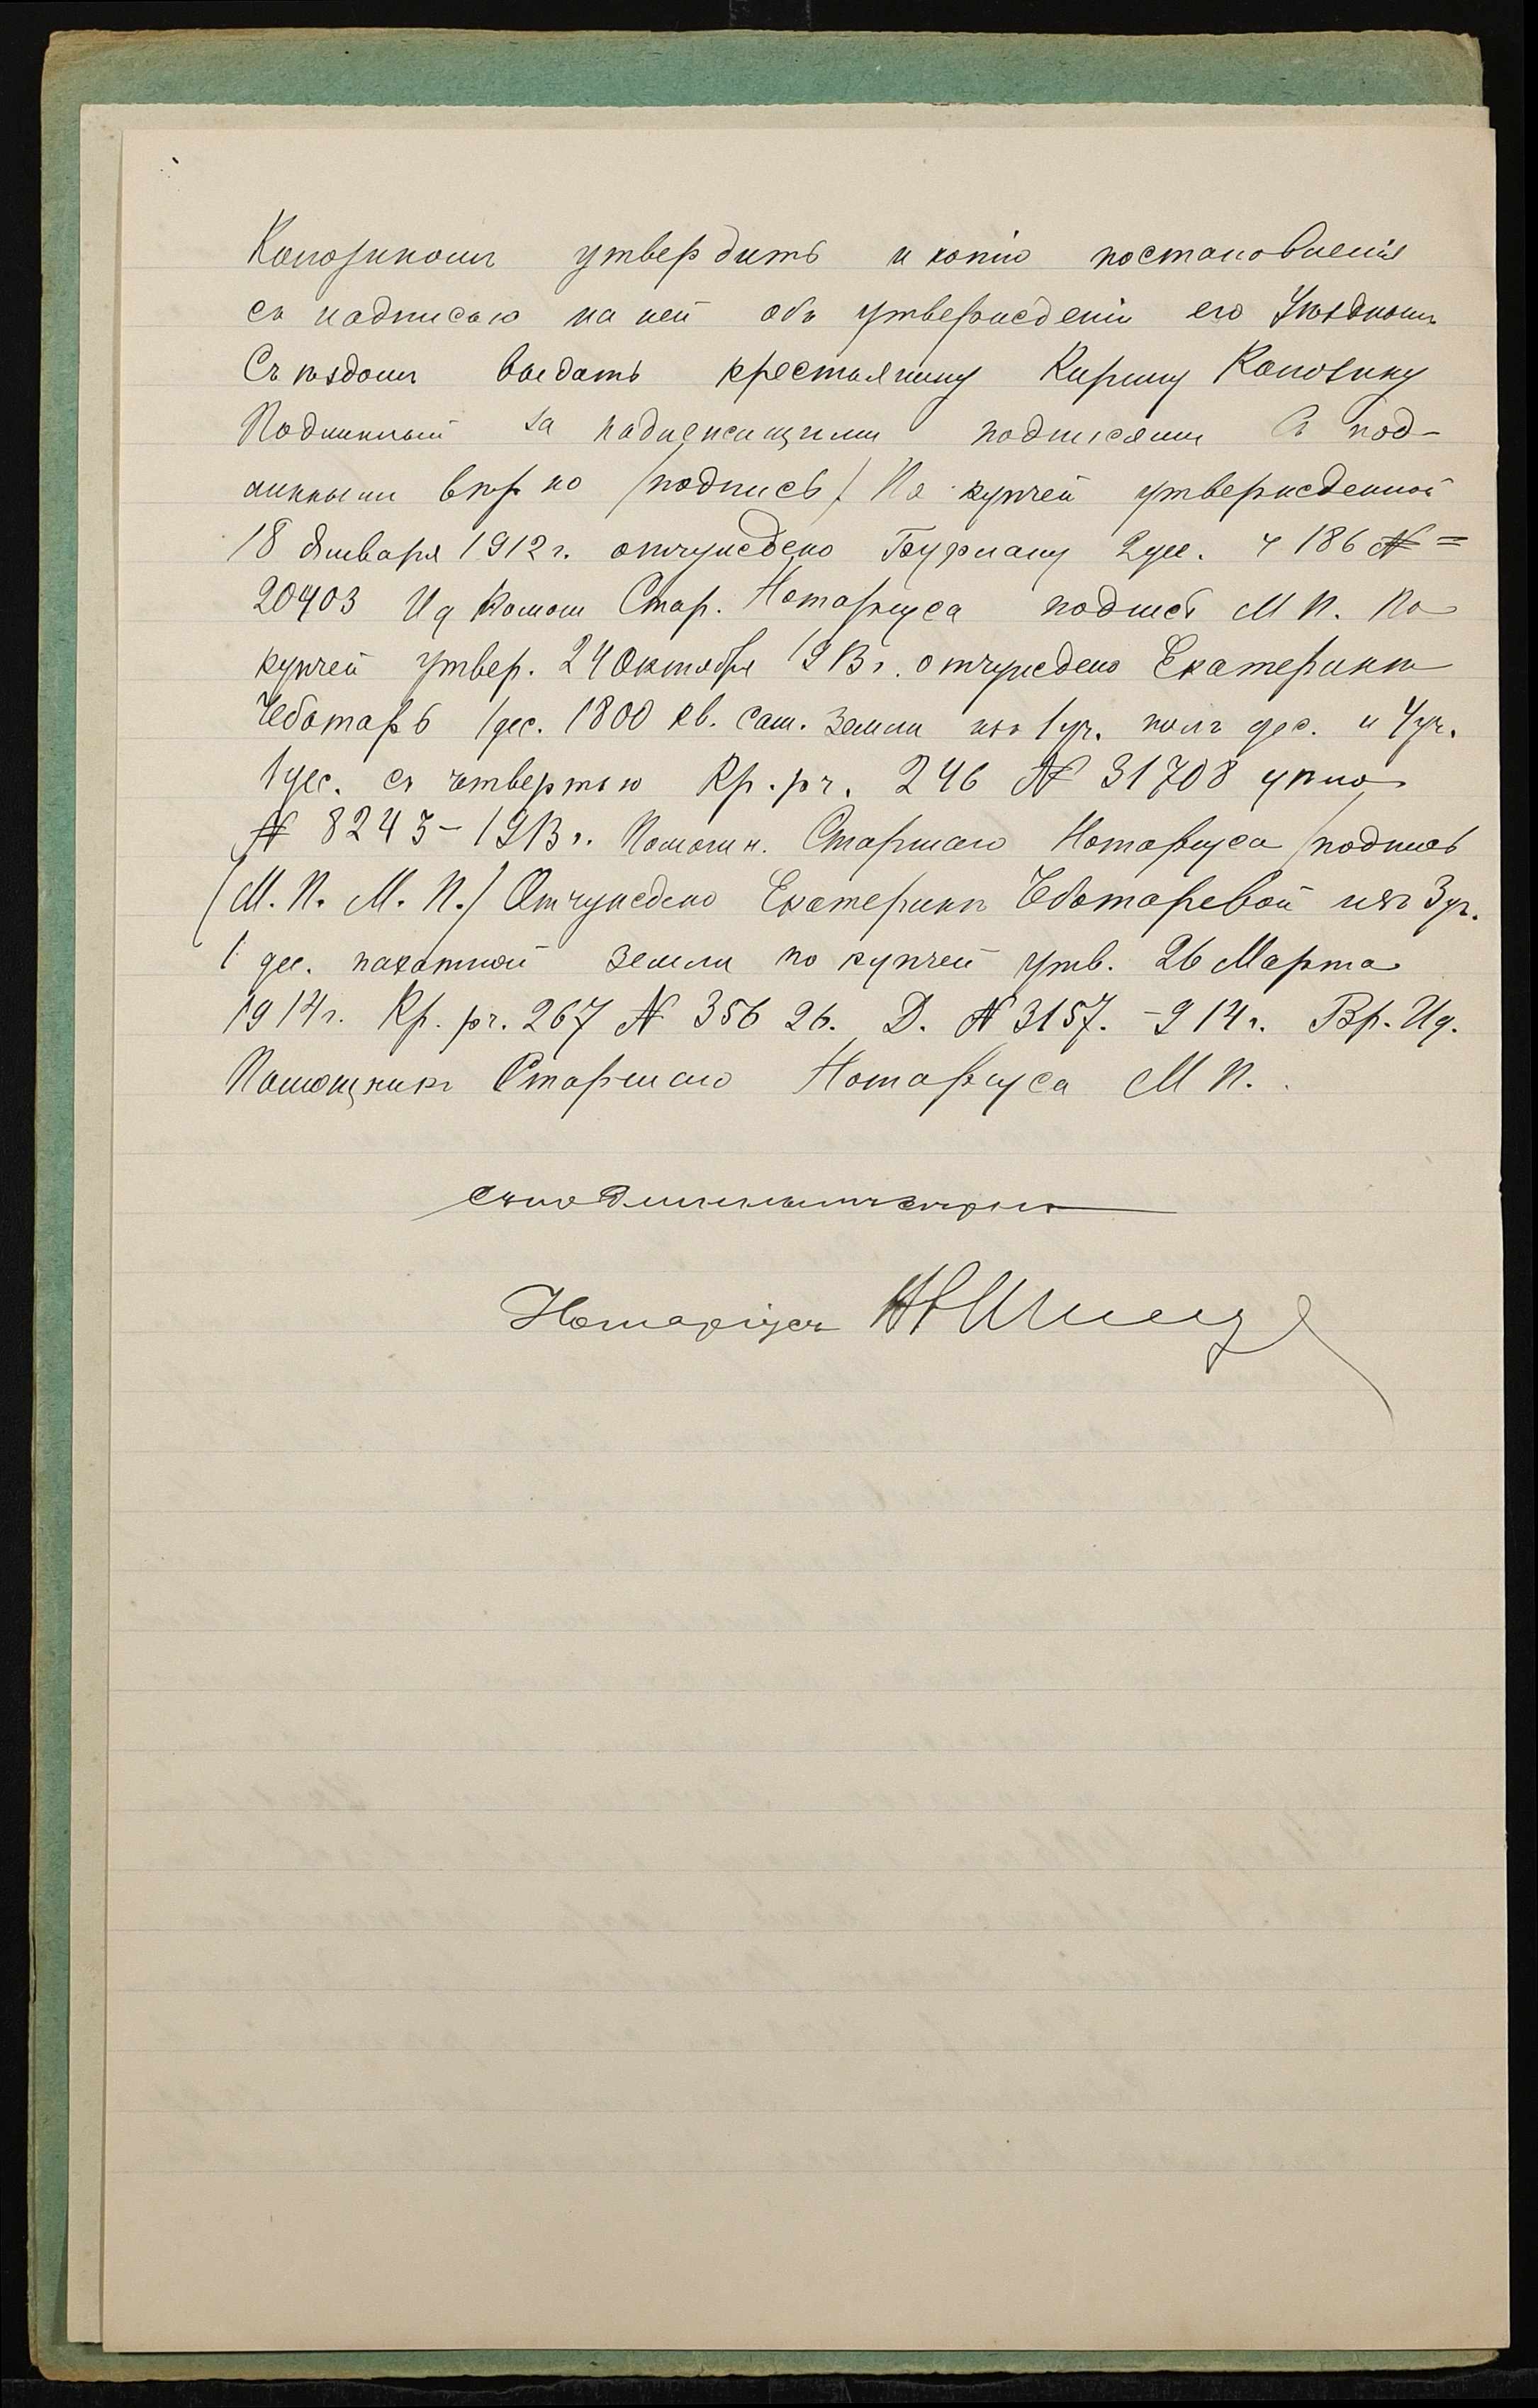 Колозикомъ утвердить и копію постановленія
съ надписью на ней объ утвержденіи его Уѣзднымъ
Съѣздомъ выдать крестьянину Кирилу Колозику
Подлинный за надлежащими подписями Съ под-
линнымъ вѣрно /подпись/ По купчей утвержденной
18 Января 1912 г. отчуждено Бурлаку 2 дес. ч 186 № =
20403 Ид Помощ Стар. Нотаріуса подпись М П. По
купчей утвер. 24 Октября 1913 г. отчуждено Екатеринѣ
Чеботарь 1 дес. 1800 кв. саж. земли изъ 1 уч. полъ дес. и 4 уч.
1 дес. съ четвертью Кр. рч. 246 № 31708 дѣло
№ 8243 - 1913 г. Помощн. Старшаго Нотаріуса /подпись
/М. П. М. П./ Отчуждено Екатеринѣ Чеботаревой изъ 3 уч.
1 дес. пахатной земли по купчей утв. 26 Марта
1914 г. Кр. рч. 267 № 35626. Д. № 3157. - 914 г. Вр. Ид.
Помощникъ Старшаго Нотаріуса М П.
Съ подлиннымъ вѣрно
Нотаріусъ